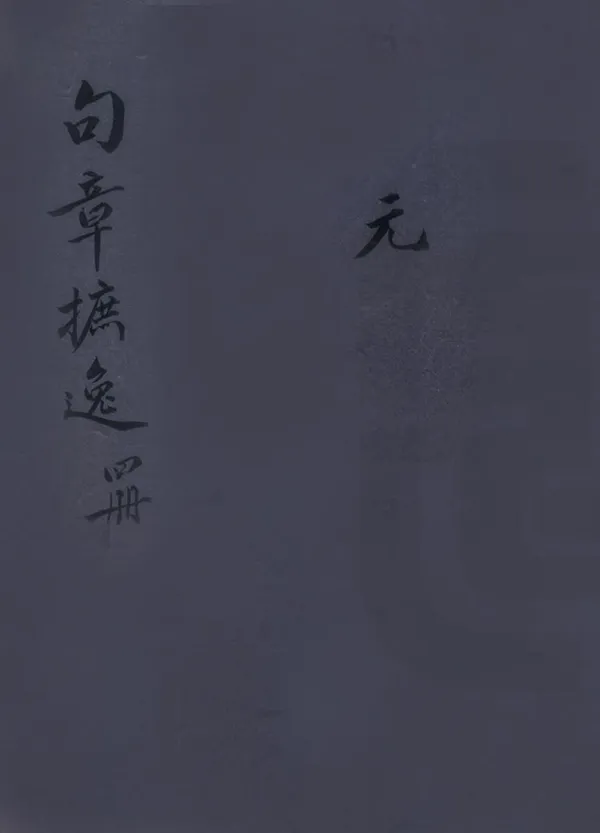 元
句章摭逸 四冊